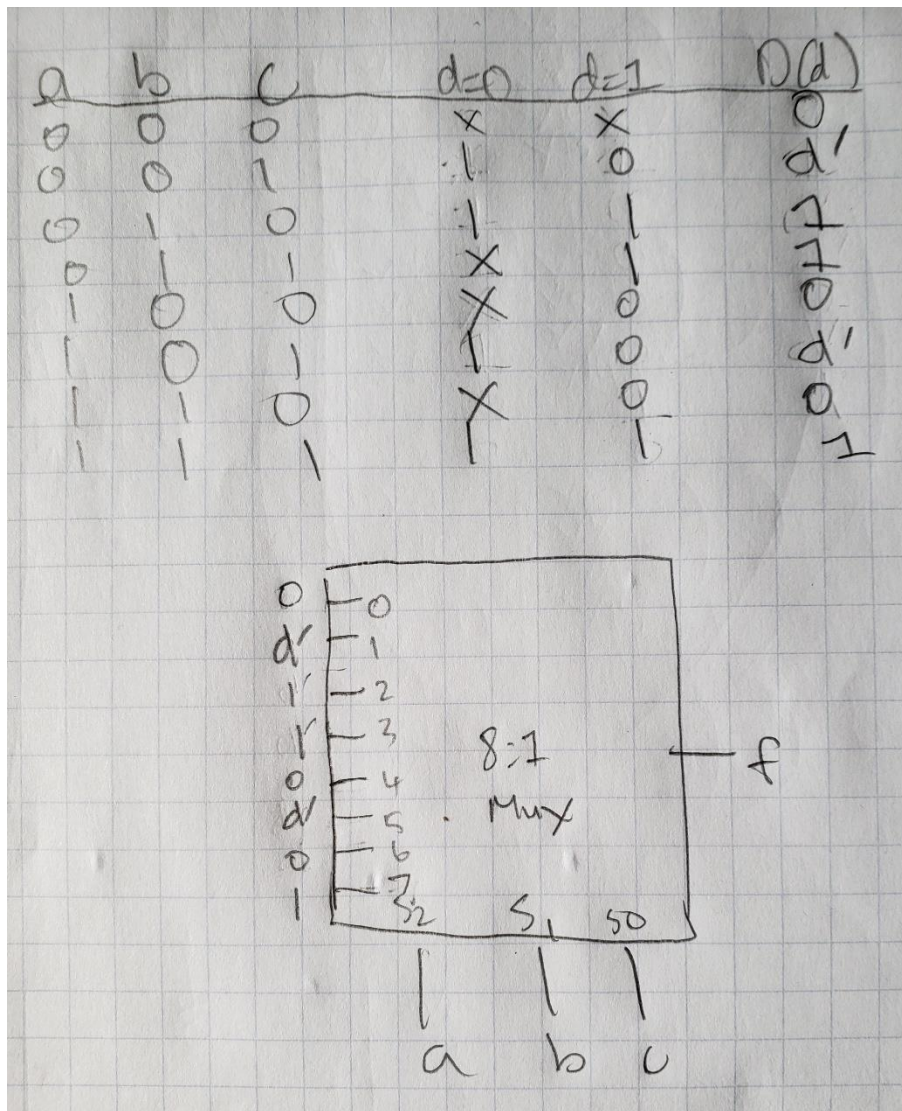 a b c d=0 d=1 D(d)
0 0 0 x x 0
0 0 1 1 0 d'
0 1 0 1 1 1
0 1 1 X 1 1
1 0 0 X 0 0
1 0 1 1 0 d'
1 1 0 X 0 0
1 1 1 1 1 1
0 0
d' 1
1 2
1 3
0 4
d' 5
0 6
1 7
8:1
Mux
f
S2 S1 S0
a b c